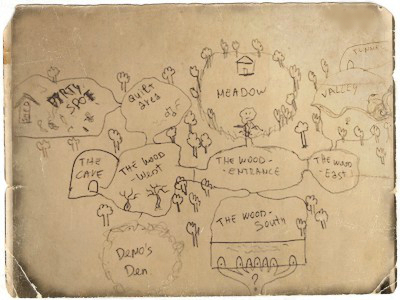 DIRTY
SPOT
QUIET
area
MEADOW
VALLEY
THE
CAVE
THE WOOD
-West
THE WOOD
-ENTRANCE
THE WOOD
-East
THE WOOD-
South
DEMO'S
Den
?